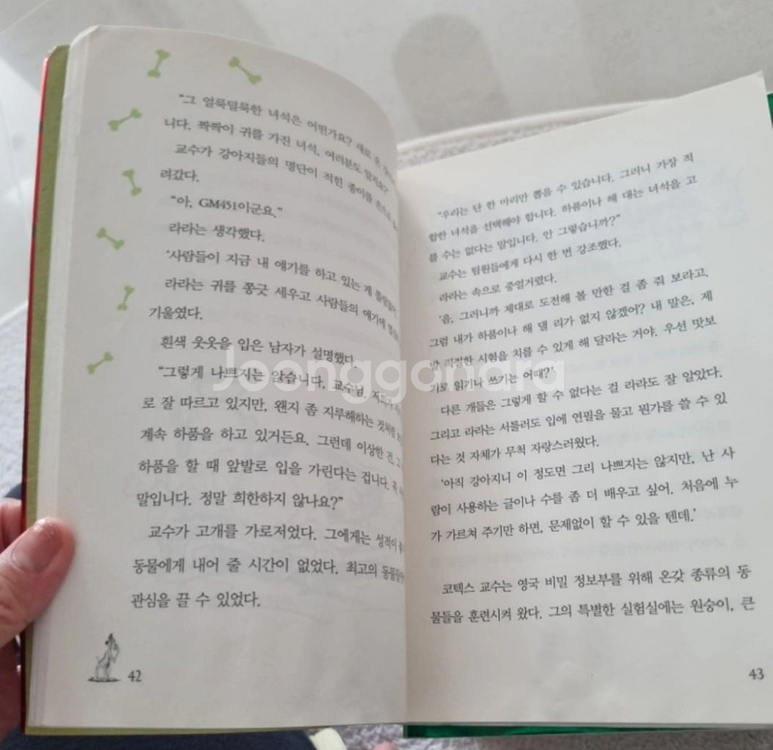 "그 얼룩덜룩한 녀석은 어떤가요? 새로 온
니다. 짝짝이 귀를 가진 녀석, 여러분도 알지요?"
교수가 강아지들의 명단이 적힌 종이를 손으로
려갔다.
"아, GM451이군요."
라라는 생각했다.
'사람들이 지금 내 얘기를 하고 있는 게 틀림없어.
라라는 귀를 쫑긋 세우고 사람들의 얘기에
기울였다.
흰색 웃옷을 입은 남자가 설명했다.
"그렇게 나쁘지는 않습니다, 교수님.
로 잘 따르고 있지만, 왠지 좀 지루해하는 것처럼
계속 하품을 하고 있거든요. 그런데 이상한 건,
하품을 할 때 앞발로 입을 가린다는 겁니다.
말입니다. 정말 희한하지 않나요?"
교수가 고개를 가로저었다. 그에게는 성적이
동물에게 내어 줄 시간이 없었다. 최고의 동물들만이
관심을 끌 수 있었다.
42
"우리는 단 한 마리만 뽑을 수 있습니다. 그러니 가장 적
합한 녀석을 선택해야 합니다. 하품이나 해 대는 녀석을 고
를 수는 없다는 말입니다. 안 그렇습니까?"
교수는 팀원들에게 다시 한 번 강조했다.
라라는 속으로 중얼거렸다.
'음, 그러니까 제대로 도전해 볼 만한 걸 좀 줘 보라고.
그럼 내가 하품이나 해 댈 리가 없지 않겠어? 내 말은, 제
발 적절한 시험을 치를 수 있게 해 달라는 거야. 우선 맛보
기로 읽기나 쓰기는 어때?'
다른 개들은 그렇게 할 수 없다는 걸 라라도 잘 알았다.
그리고 라라는 서툴러도 입에 연필을 물고 뭔가를 쓸 수 있
다는 것 자체가 무척 자랑스러웠다.
'아직 강아지니 이 정도면 그리 나쁘지는 않지만, 난 사
람이 사용하는 글이나 수를 좀 더 배우고 싶어. 처음에 누
가 가르쳐 주기만 하면, 문제없이 할 수 있을 텐데.'
코텍스 교수는 영국 비밀 정보부를 위해 온갖 종류의 동
물들을 훈련시켜 왔다. 그의 특별한 실험실에는 원숭이, 큰
43
Joonggonara